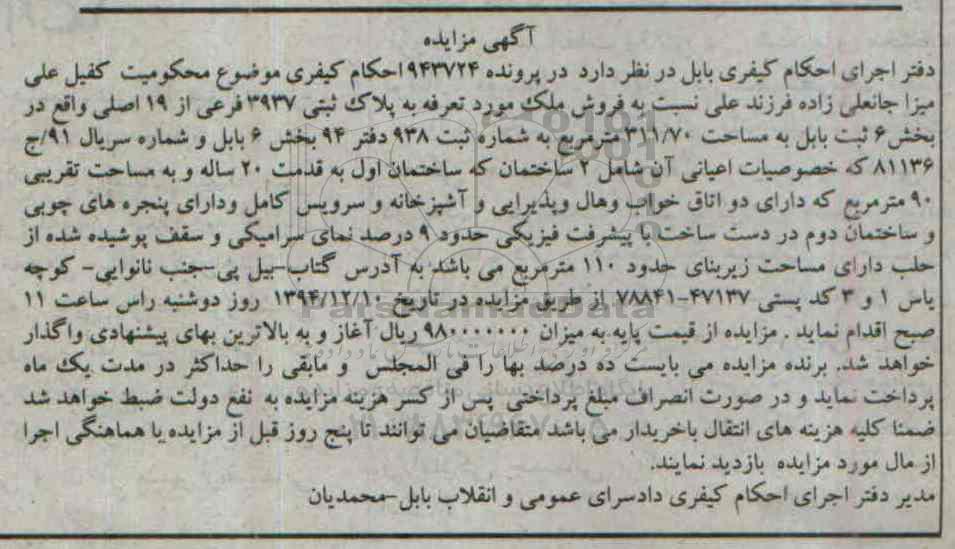 آگهی مزایده
دفتر اجرای احکام کیفری بابل در نظر دارد در پرونده ۹۴۳۷۲۴ احکام کیفری موضوع محکومیت کفیل علی
میزا جانعلی زاده فرزند علی نسبت به فروش ملک مورد تعرفه به پلاک ثبتی ۳۹۳۷ فرعی از ۱۹ اصلی واقع در
بخش ۶ ثبت بابل به مساحت ۳۱۱/۷۰ مترمربع به شماره ثبت ۹۳۸ دفتر ۹۴ بخش ۶ بابل و شماره سریال ۹۱/ج
۸۱۱۳۶ که خصوصیات اعیانی آن شامل ۲ ساختمان که ساختمان اول به قدمت ۲۰ ساله و به مساحت تقریبی
۹۰ مترمربع که دارای دو اتاق خواب وهال وپذیرایی و آشپزخانه و سرویس کامل ودارای پنجره های چوبی
و ساختمان دوم در دست ساخت با پیشرفت فیزیکی حدود ۹ درصد نمای سرامیکی و سقف پوشیده شده از
حلب دارای مساحت زیربنای حدود ۱۱۰ مترمربع می باشد به آدرس گتاب-بیل پی-جنب نانوایی- کوچه
یاس ۱ و ۳ کد پستی ۴۷۱۳۷-۷۸۸۴۱ از طریق مزایده در تاریخ ۱۳۹۴/۱۲/۱۰ روز دوشنبه راس ساعت ۱۱
صبح اقدام نماید . مزایده از قیمت پایه به میزان ۹۸۰۰۰۰۰۰۰ ریال آغاز و به بالاترین بهای پیشنهادی واگذار
خواهد شد. برنده مزایده می بایست ده درصد بها را فی المجلس و مابقی را حداکثر در مدت یک ماه
پرداخت نماید و در صورت انصراف مبلغ پرداختی پس از کسر هزینه مزایده به نفع دولت ضبط خواهد شد
ضمنا کلیه هزینه های انتقال باخریدار می باشد متقاضیان می توانند تا پنج روز قبل از مزایده با هماهنگی اجرا
از مال مورد مزایده بازدید نمایند.
مدیر دفتر اجرای احکام کیفری دادسرای عمومی و انقلاب بابل-محمدیان
ParsNamadData